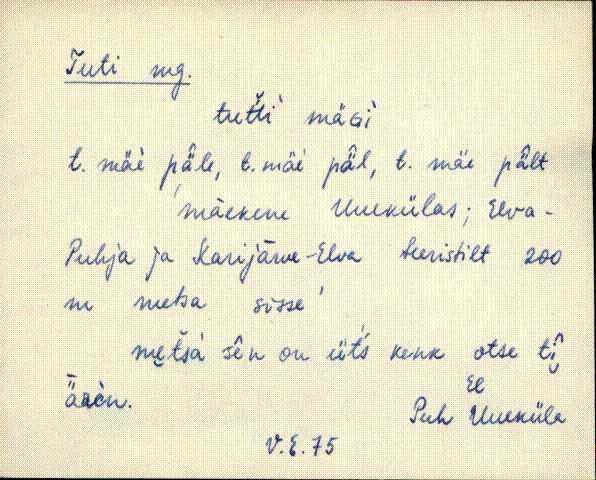 Tuti mg.
tut̆t̆i̇̀ mäɢì
t. mäè pä̂le, t. mäè pä̂l, t. mäe pä̂lt
"mäekene Uuekülas; Elva-
Puhja ja Karijärve-Elva teeristilt 200
m metsa sisse"
mętšà sên on üt's kenk otse tî̮
ääèn.
EE
Puh Uueküla
V.E.75